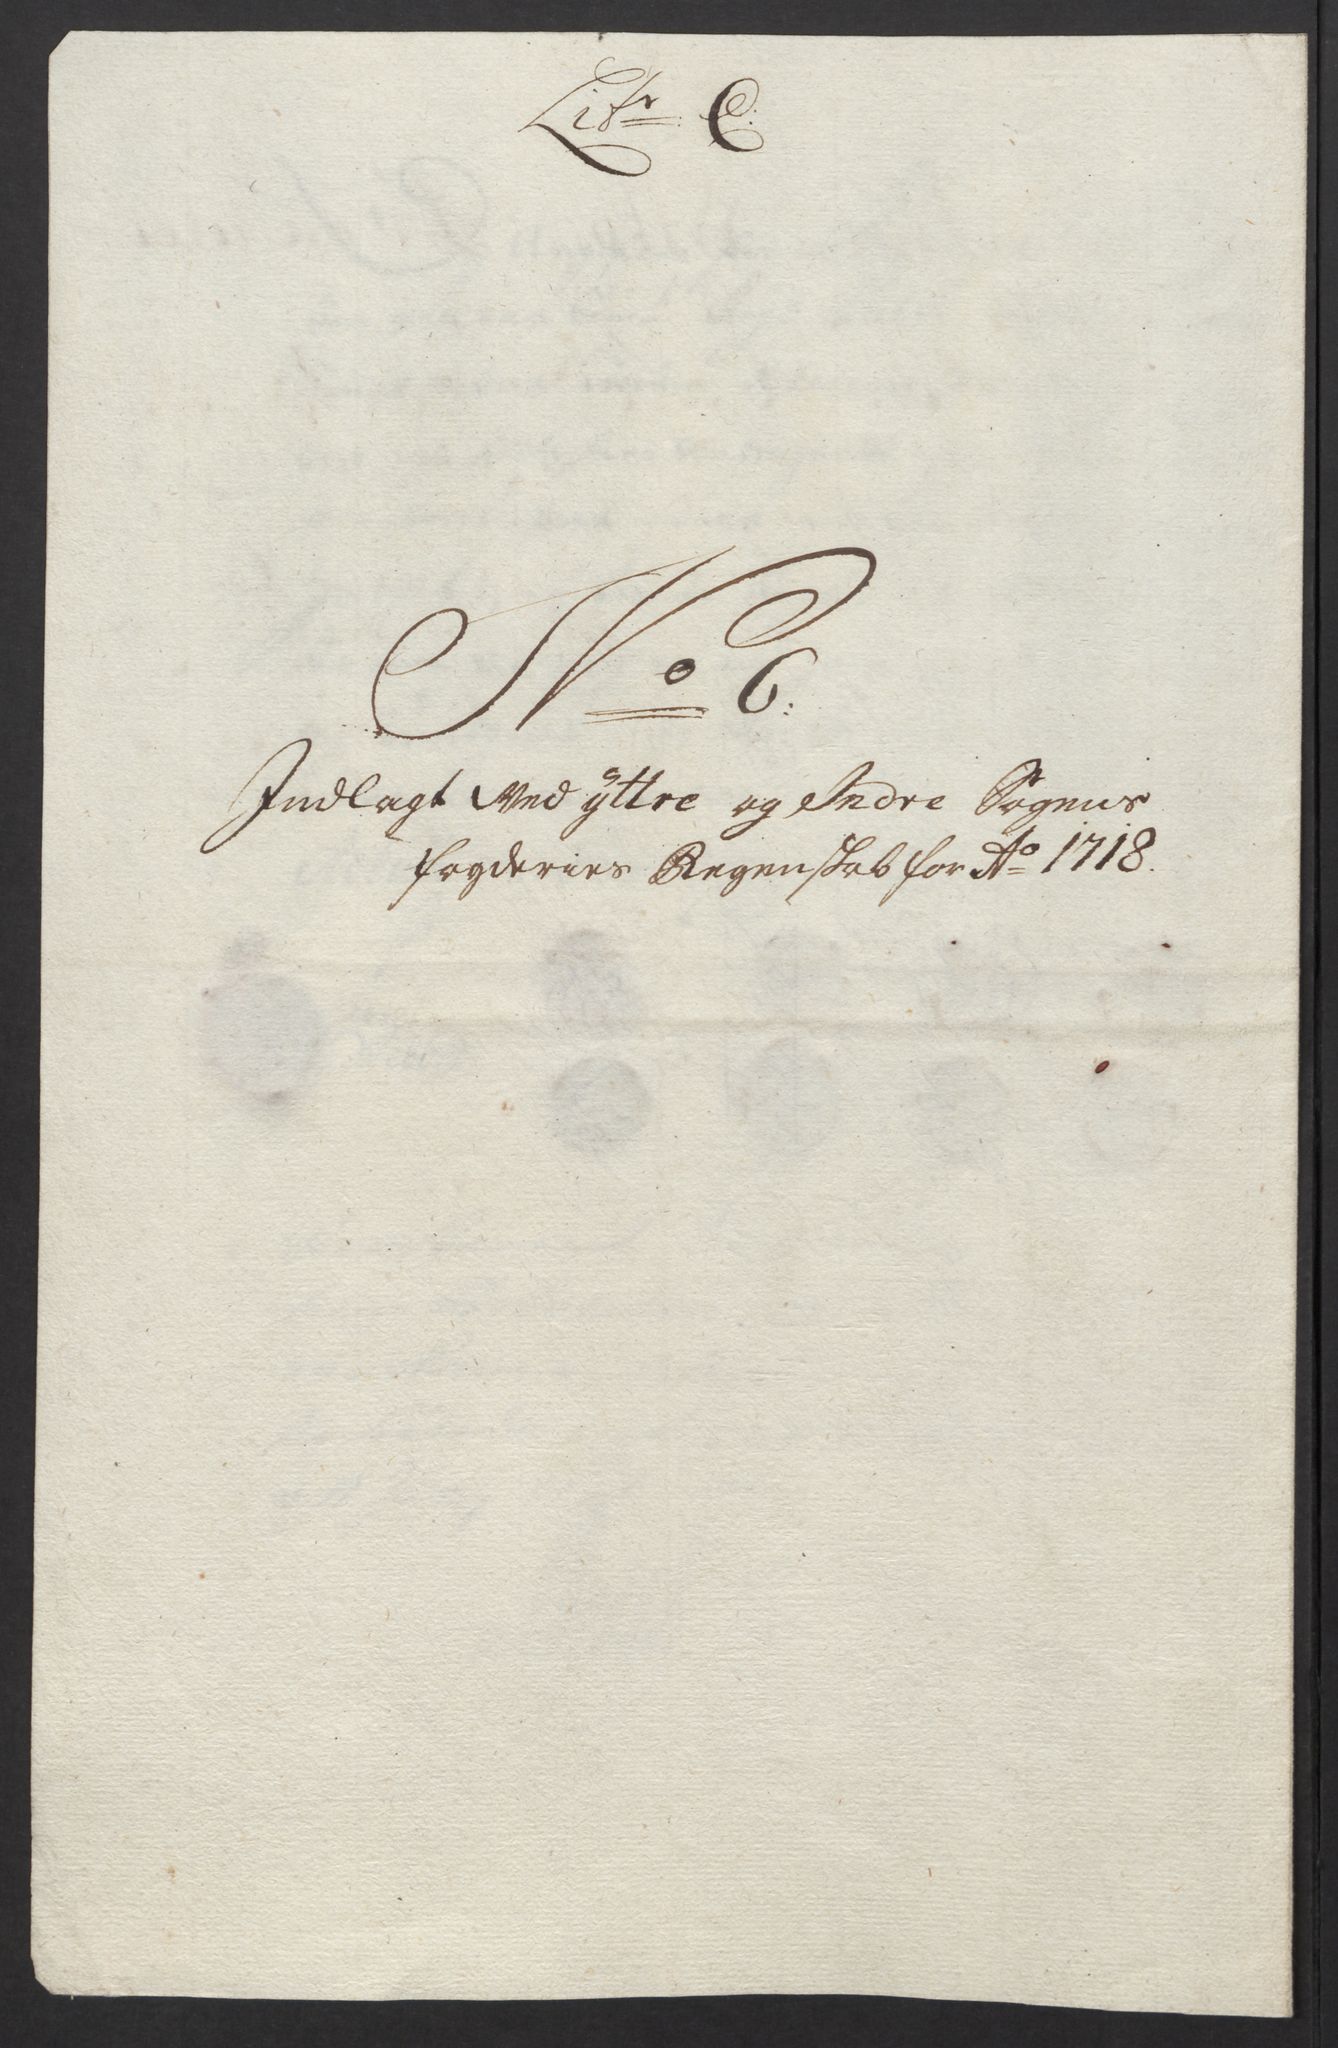 Litr C:
No 6:
Indlagt Ved Yttre og Indre Sogens
fogderies Regenskab for Ao 1718.